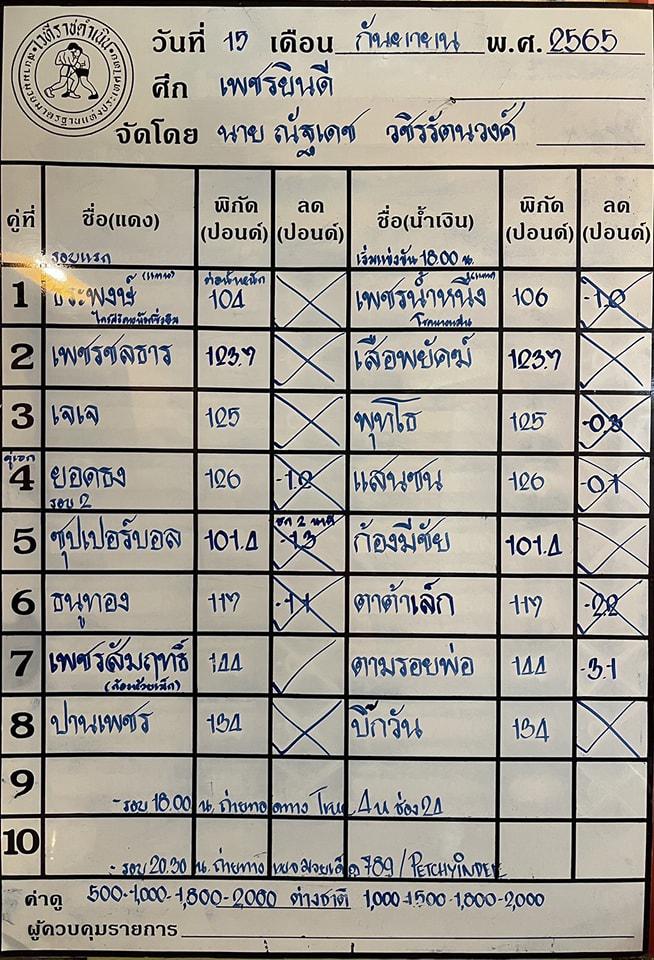 เวทีราชดำเนิน
วันที่ 15 เดือน กันยายน พ.ศ. 2565
ศึก เพชรยินดี
จัดโดย นาย ณัฐเดช วชิรรัตนวงศ์
คู่ที่ ชื่อ(แดง) พิกัด (ปอนด์) ลด (ปอนด์) ชื่อ(น้ำเงิน) พิกัด (ปอนด์) ลด (ปอนด์)
รอบแรก เริ่มแข่งขัน 18.00 น.
1 ธีระพงษ์ (แทน) ต่อน้ำหนัก 104 เพชรน้ำหนึ่ง (แทน) 106 -1.0
2 เพชรชลธาร 123.7 เสือพยัคฆ์ 123.7
3 เจเจ 125 พุทโธ 125 -0.3
คู่เอก
4 ยอดธง 126 -1.0 แสนชน 126 -0.1
รอบ 2
5 ซุปเปอร์บอล 101.4 ชก 2 นาที -1.3 ก้องมีชัย 101.4
6 ธนูทอง 117 -1.1 ตาต้าเล็ก 117 -2.2
7 เพชรสัมฤทธิ์ 144 ตามรอยพ่อ 144 -3.1
8 ปานเพชร 134 บิ๊กวัน 134
9
- รอบ 18.00 น. ถ่ายทอดทาง True 4u ช่อง 24
10
- รอบ 20.30 น. ถ่ายทาง 789 / PETCHYINDEE
ค่าดู 500-1,000-1,800-2,000 ต่างชาติ 1,000-1,500-1,800-2,000
ผู้ควบคุมรายการ